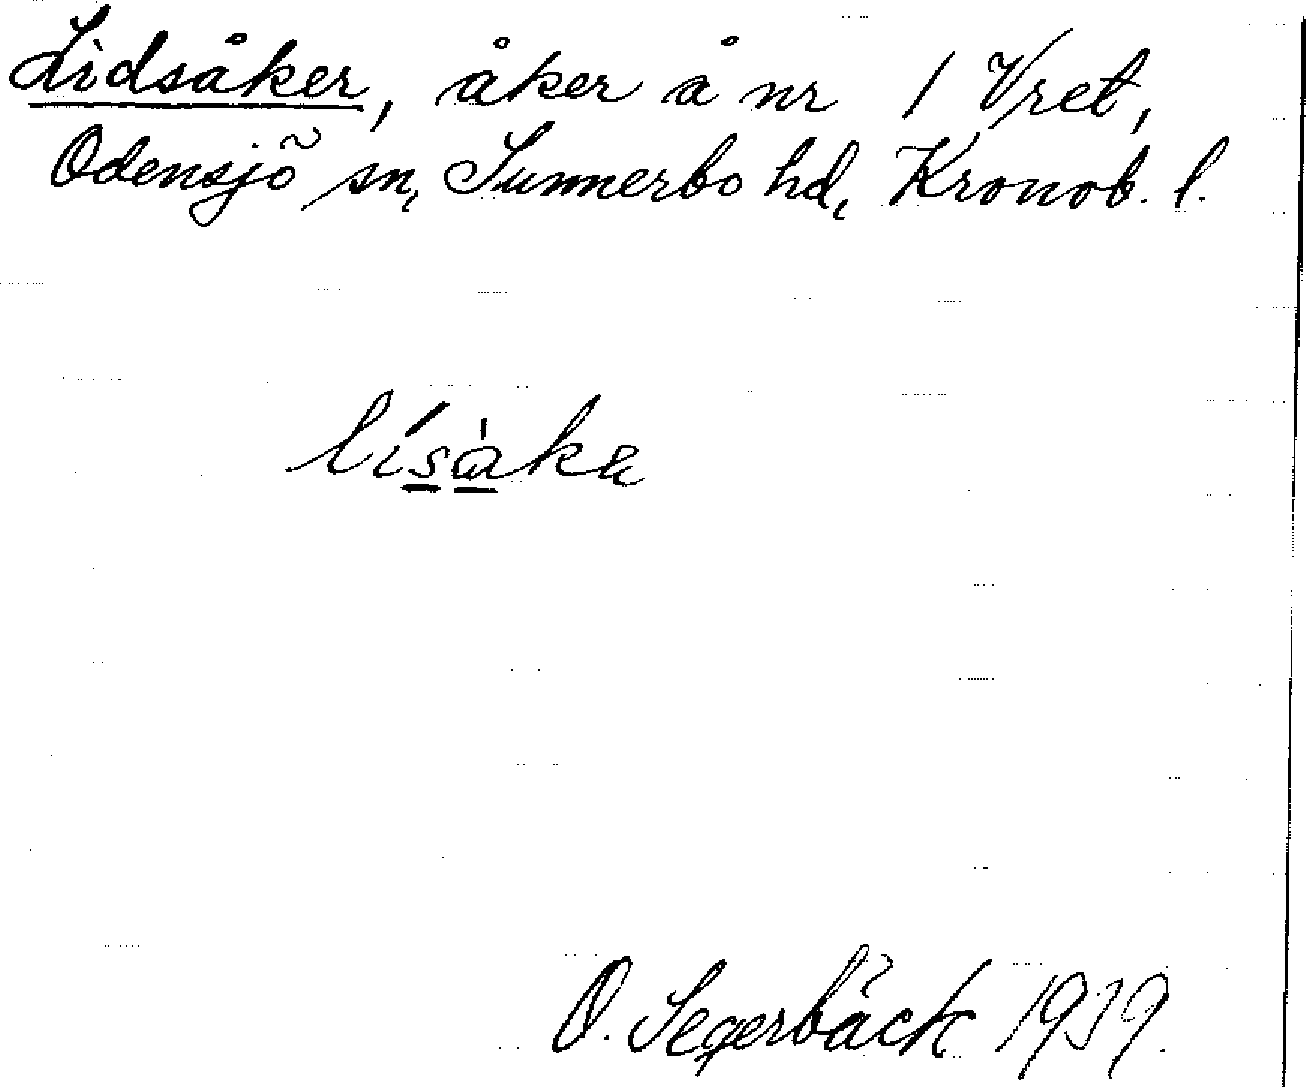 Lidsåker, åker å nr 1 Vret,
Odensjö sn, Sunnerbo hd, Kronob. l.
lísàka
O. Segerbäck 1939.